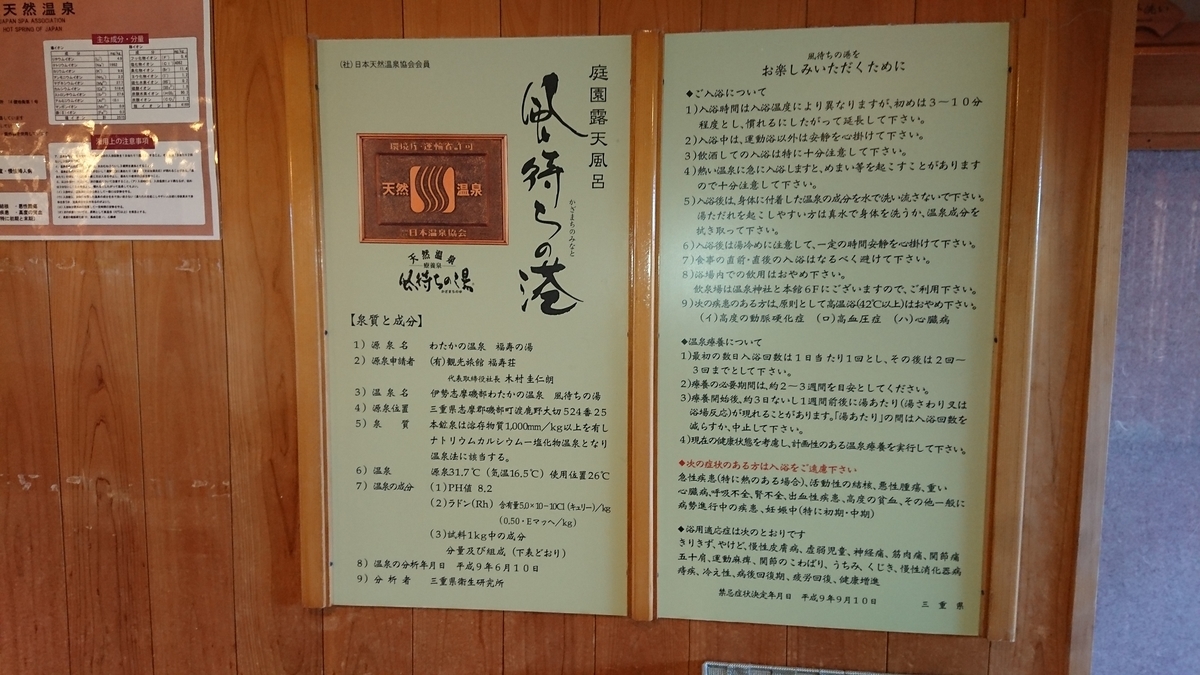 天然温泉
JAPAN SPA ASSOCIATION
HOT SPRING OF JAPAN
主な成分・分量
(社)日本天然温泉協会会員
庭園露天風呂
風待ちの港
かざまちのみなと
環境庁・運輸省許可
天然 温泉
日本温泉協会
天然温泉
風待ちの湯
【泉質と成分】
1) 源泉名 わたかの温泉 福寿の湯
2) 源泉申請者 (有)観光旅館 福寿荘
代表取締役社長 木村圭仁朗
3) 温泉名 伊勢志摩磯部わたかの温泉 風待ちの湯
4) 源泉位置 三重県志摩郡磯部町渡鹿野大切524番25
5) 泉質 本鉱泉は溶存物質1,000mm/kg以上を有し
ナトリウムカルシウムー塩化物温泉となり
温泉法に該当する。
6) 温泉 源泉31.7℃(気温16.5℃)使用位置26℃
7) 温泉の成分 (1)PH値 8.2
(2)ラドン(Rh) 含有量5.0×10-10C1(キュリー)/kg
(0.50・Eマッヘ/kg)
(3)試料1kg中の成分
分量及び組成(下表どおり)
8) 温泉の分析年月日 平成9年6月10日
9) 分析者 三重県衛生研究所
風待ちの港を
お楽しみいただくために
◆ご入浴について
1)入浴時間は入浴温度により異なりますが、初めは3〜10分
程度とし、慣れるにしたがって延長して下さい。
2)入浴中は、運動浴以外は安静を心掛けて下さい。
3)飲酒しての入浴は特に十分注意して下さい。
4)熱い温泉に急に入浴しますと、めまい等を起こすことがあります
ので十分注意して下さい。
5)入浴後は、身体に付着した温泉の成分を水で洗い流さないで下さい。
湯ただれを起こしやすい方は真水で身体を洗うか、温泉成分を
拭き取って下さい。
6)入浴後は湯冷めに注意して、一定の時間安静を心掛けて下さい。
7)食事の直前・直後の入浴はなるべく避けて下さい。
8)浴場内での飲用はおやめ下さい。
飲泉場は温泉神社と本館6Fにございますので、ご利用下さい。
9)次の疾患のある方は、原則として高温浴(42℃以上)はおやめ下さい。
(イ)高度の動脈硬化症 (ロ)高血圧症 (ハ)心臓病
◆温泉療養について
1)最初の数日入浴回数は1日当たり1回とし、その後は2回〜
3回までとして下さい。
2)療養の必要期間は、約2〜3週間を目安としてください。
3)療養開始後、約3日ないし1週間前後に湯あたり(湯さわり又は
浴場反応)が現れることがあります。「湯あたり」の間は入浴回数を
減らすか、中止して下さい。
4)現在の健康状態を考慮し、計画性のある温泉療養を実行して下さい。
◆次の症状のある方は入浴をご遠慮下さい
急性疾患(特に熱のある場合)、活動性の結核、悪性腫瘍、重い
心臓病、呼吸不全、腎不全、出血性疾患、高度の貧血、その他一般に
病勢進行中の疾患、妊娠中(特に初期・中期)
◆浴用適応症は次のとおりです
きりきず、やけど、慢性皮膚病、虚弱児童、神経痛、筋肉痛、関節痛
五十肩、運動麻痺、関節のこわばり、うちみ、くじき、慢性消化器病
痔疾、冷え性、病後回復期、疲労回復、健康増進
禁忌症状決定年月日 平成9年9月10日 三重県